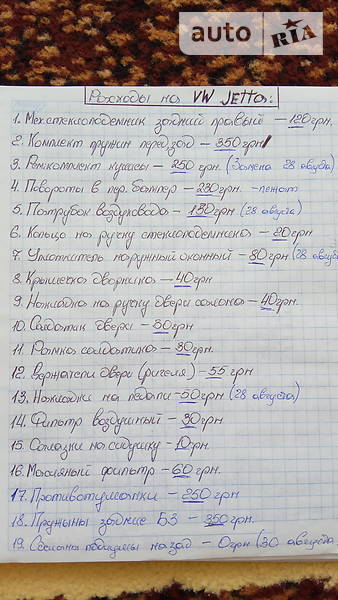 auto RIA
Расходы на VW Jetta:
1. Мех.стеклоподемник задний правый – 120грн.
2. Комплект пружин перед зад – 350грн
3. Ремкомплект кулисы – 250 грн. (Замена 28 августа)
4. Повороты в пер. бампер – 230грн –
5. Патрубок воздуховода – 130грн (28 августа)
6. Кольцо на ручку стеклоподемника – 20грн
7. Уплотнитель наружный оконный – 80грн (28 августа
8. Крышечка дворника – 40грн
9. Накладка на ручку двери салона – 40грн.
10. Солдатик двери – 30грн
11. Рамка солдатика – 30грн.
12. двери (ригеля) – 55 грн
13. Накладки на педали – 50грн (28 августа)
14. Фильтр воздушный – 90грн
15. на сидушку – 10грн.
16. Масляный фильтр – 60грн.
17. Противотуманки – 250грн
18. Пружыны задние Б3 – 350грн.
19. назад – 0грн (30 августа